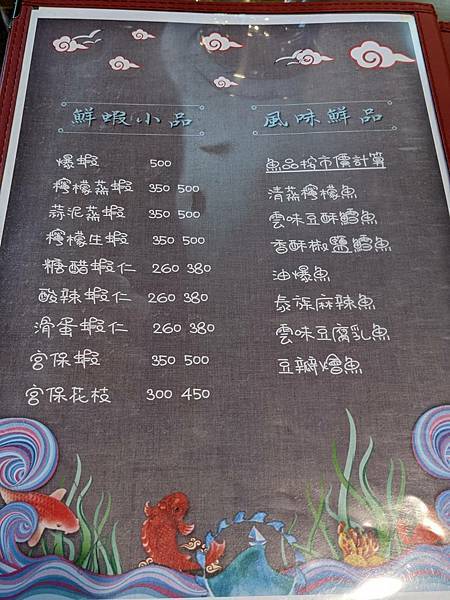 鮮蝦小品
爆蝦 500
檸檬蒸蝦 350 500
蒜泥蒸蝦 350 500
檸檬生蝦 350 500
糖醋蝦仁 260 380
酸辣蝦仁 260 380
滑蛋蝦仁 260 380
宮保蝦 350 500
宮保花枝 300 450
風味鮮品
魚品按市價計算
清蒸檸檬魚
雲味豆酥鱈魚
香酥椒鹽鱈魚
油爆魚
泰式麻辣魚
雲味豆腐乳魚
豆瓣燴魚